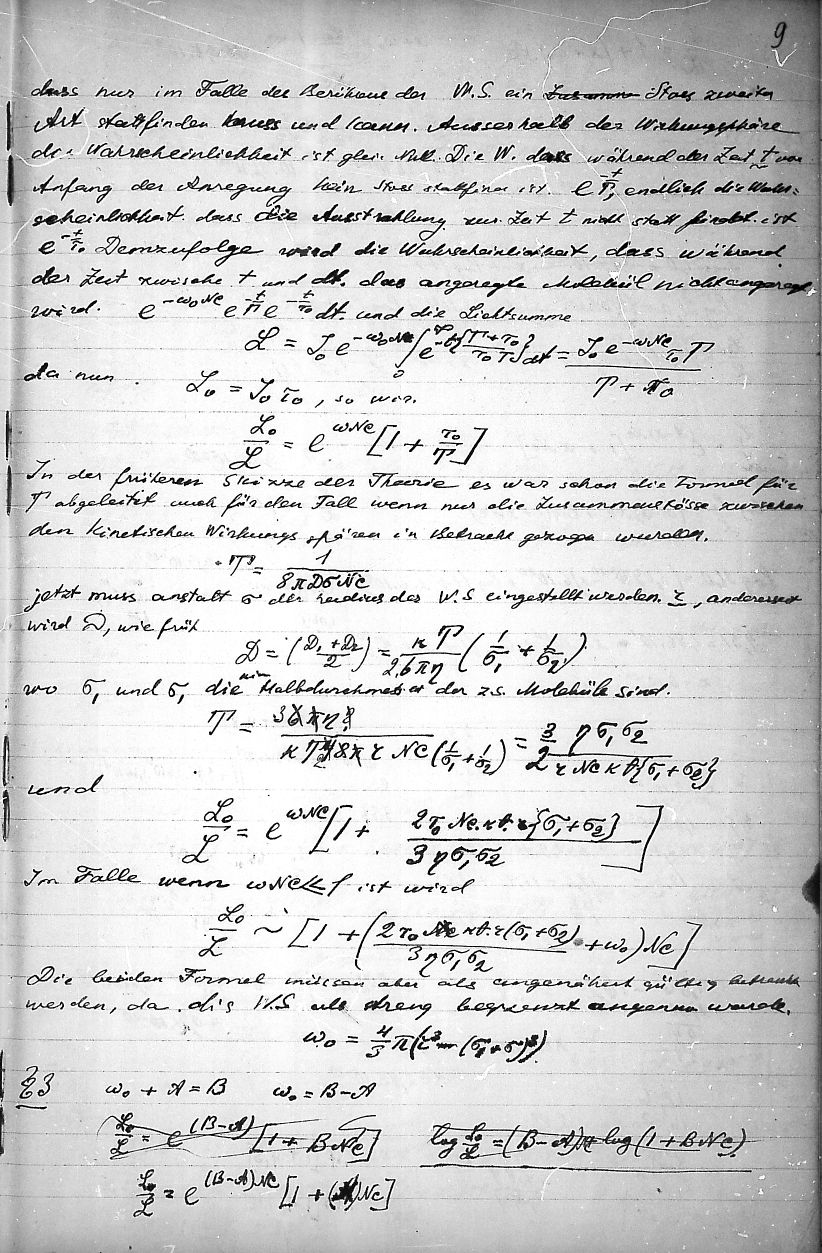 9
dass nur im Falle der Berührung der W.S. ein Zusammen Stoss zweiter
Art stattfinden muss und kann. Ausserhalb der Wirkungsphäre
die Wahrscheinlichkeit ist glei. Null. Die W. dass während der Zeit t von
Anfang der Anregung kein Stoss stattfinet ist e^{-t/T}, endlich die Wahr=
scheinlichkeit dass die Ausstrahlung zur Zeit t nicht statt findet ist
e^{-t/τ₀} Demzufolge wird die Wahrscheinlichkeit, dass während
der Zeit zwische t und dt. das angeregte Molekül nicht angeregt
wird. e^{-ω₀Nc} e^{-t/T} e^{-t/τ₀} dt. und die Lichtsumme
L = J₀ e^{-ω₀Nc} ∫₀^∞ e^{-t{(T+τ₀)/(τ₀T)}} dt = J₀ e^{-ωNc} τ₀ T / (T + τ₀)
da nun L₀ = J₀ τ₀, so wir.
L₀/L = e^{ωNc} [1 + τ₀/T]
In der früheren Skizze der Theorie es war schon die Formel für
T abgeleitet auch für den Fall wenn nur die Zusammenstösse zwischen
den Kinetischen Wirkungs spären in Betracht gezogen wurden.
T = 1 / (8πDσNc)
jetzt muss anstatt σ der radius des W.S eingestellt werden. r, anderseit
wird D, wie früh
D = ((D₁ + D₂)/2) = κT/(2,6πη) (1/σ₁ + 1/σ₂)
wo σ₁ und σ₁ die Halbdurchmesser der z.s. Moleküle sind.
T = 36πη / (κT 48π r Nc (1/σ₁ + 1/σ₂)) = 3/2 ησ₁σ₂ / (r Nc κt{σ₁+σ₂})
und
L₀/L = e^{ωNc} [1 + 2τ₀ Nc. κt. r{σ₁+σ₂} / (3ησ₁σ₂)]
Im Falle wenn ωNc ≪ 1 ist wird
L₀/L ~ [1 + (2τ₀ κt. r(σ₁+σ₂) / (3ησ₁σ₂) + ω₀) Nc]
Die beiden Formel müssen aber als angenähert gültig betracht
werden, da die W.S als streng begrenzt angenom wurde.
ω₀ = 4/3 π(r³ - (σ₁+σ)³)
§3 ω₀ + A = B ω₀ = B-A
L₀/L = e^{(B-A)} [1 + BNc] log L₀/L = (B-A)c + log(1+BNc)
L₀/L = e^{(B-A)Nc} [1 + (A)Nc]